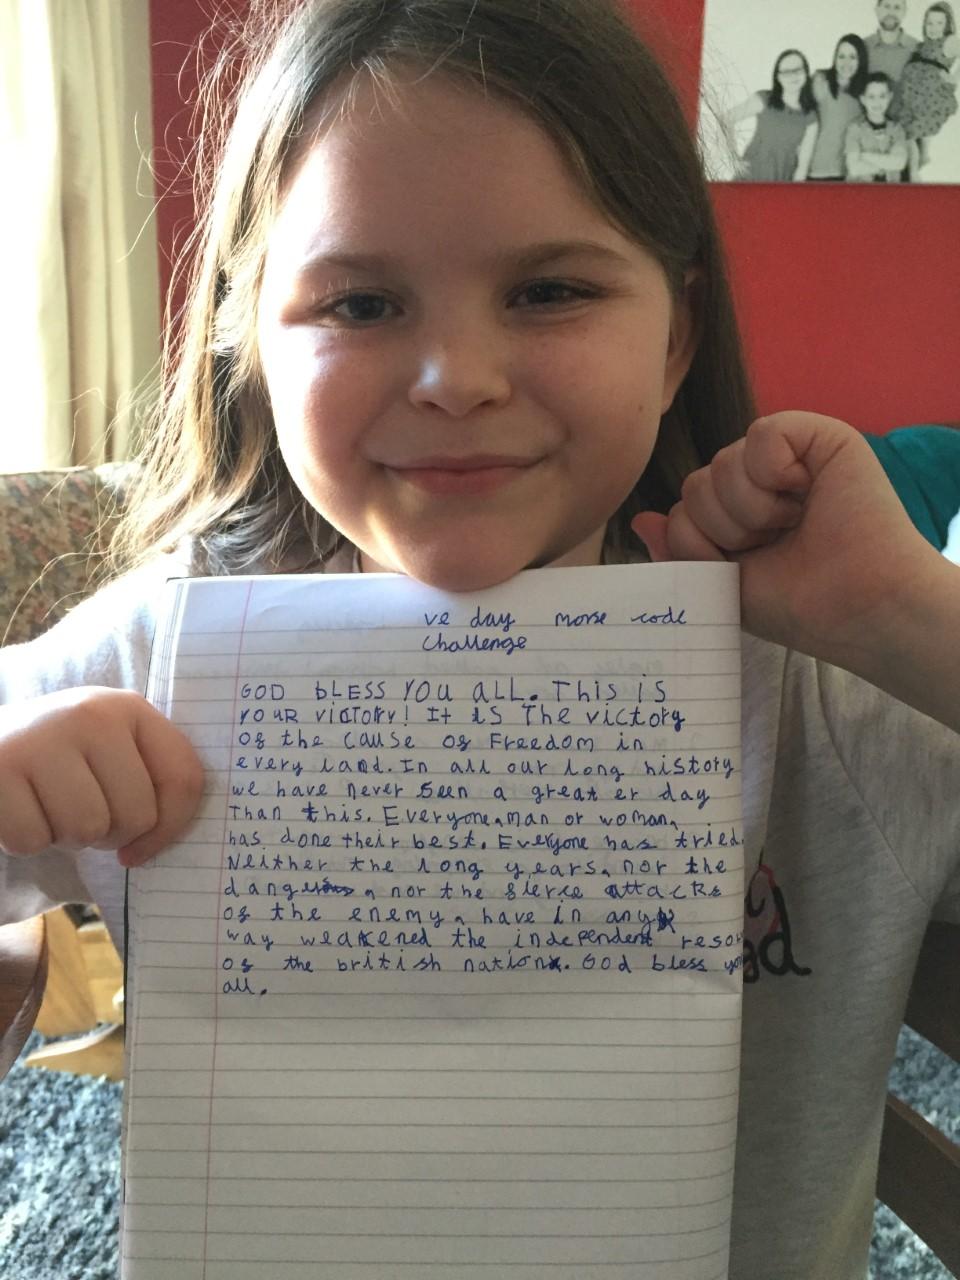 ve day morse code
challenge
GOD bLESS YOU ALL. This is
YOUR VICTORY! It is The victory
of the cause of Freedom in
every land. In all our long history
we have never seen a great er day
Than this. Everyone, man or woman,
has done their best. Everyone has tried.
Neither the long years, nor the
dangers, nor the fierce attacks
of the enemy, have in any
way weakened the independent resol
of the british nation. God bless you
all.